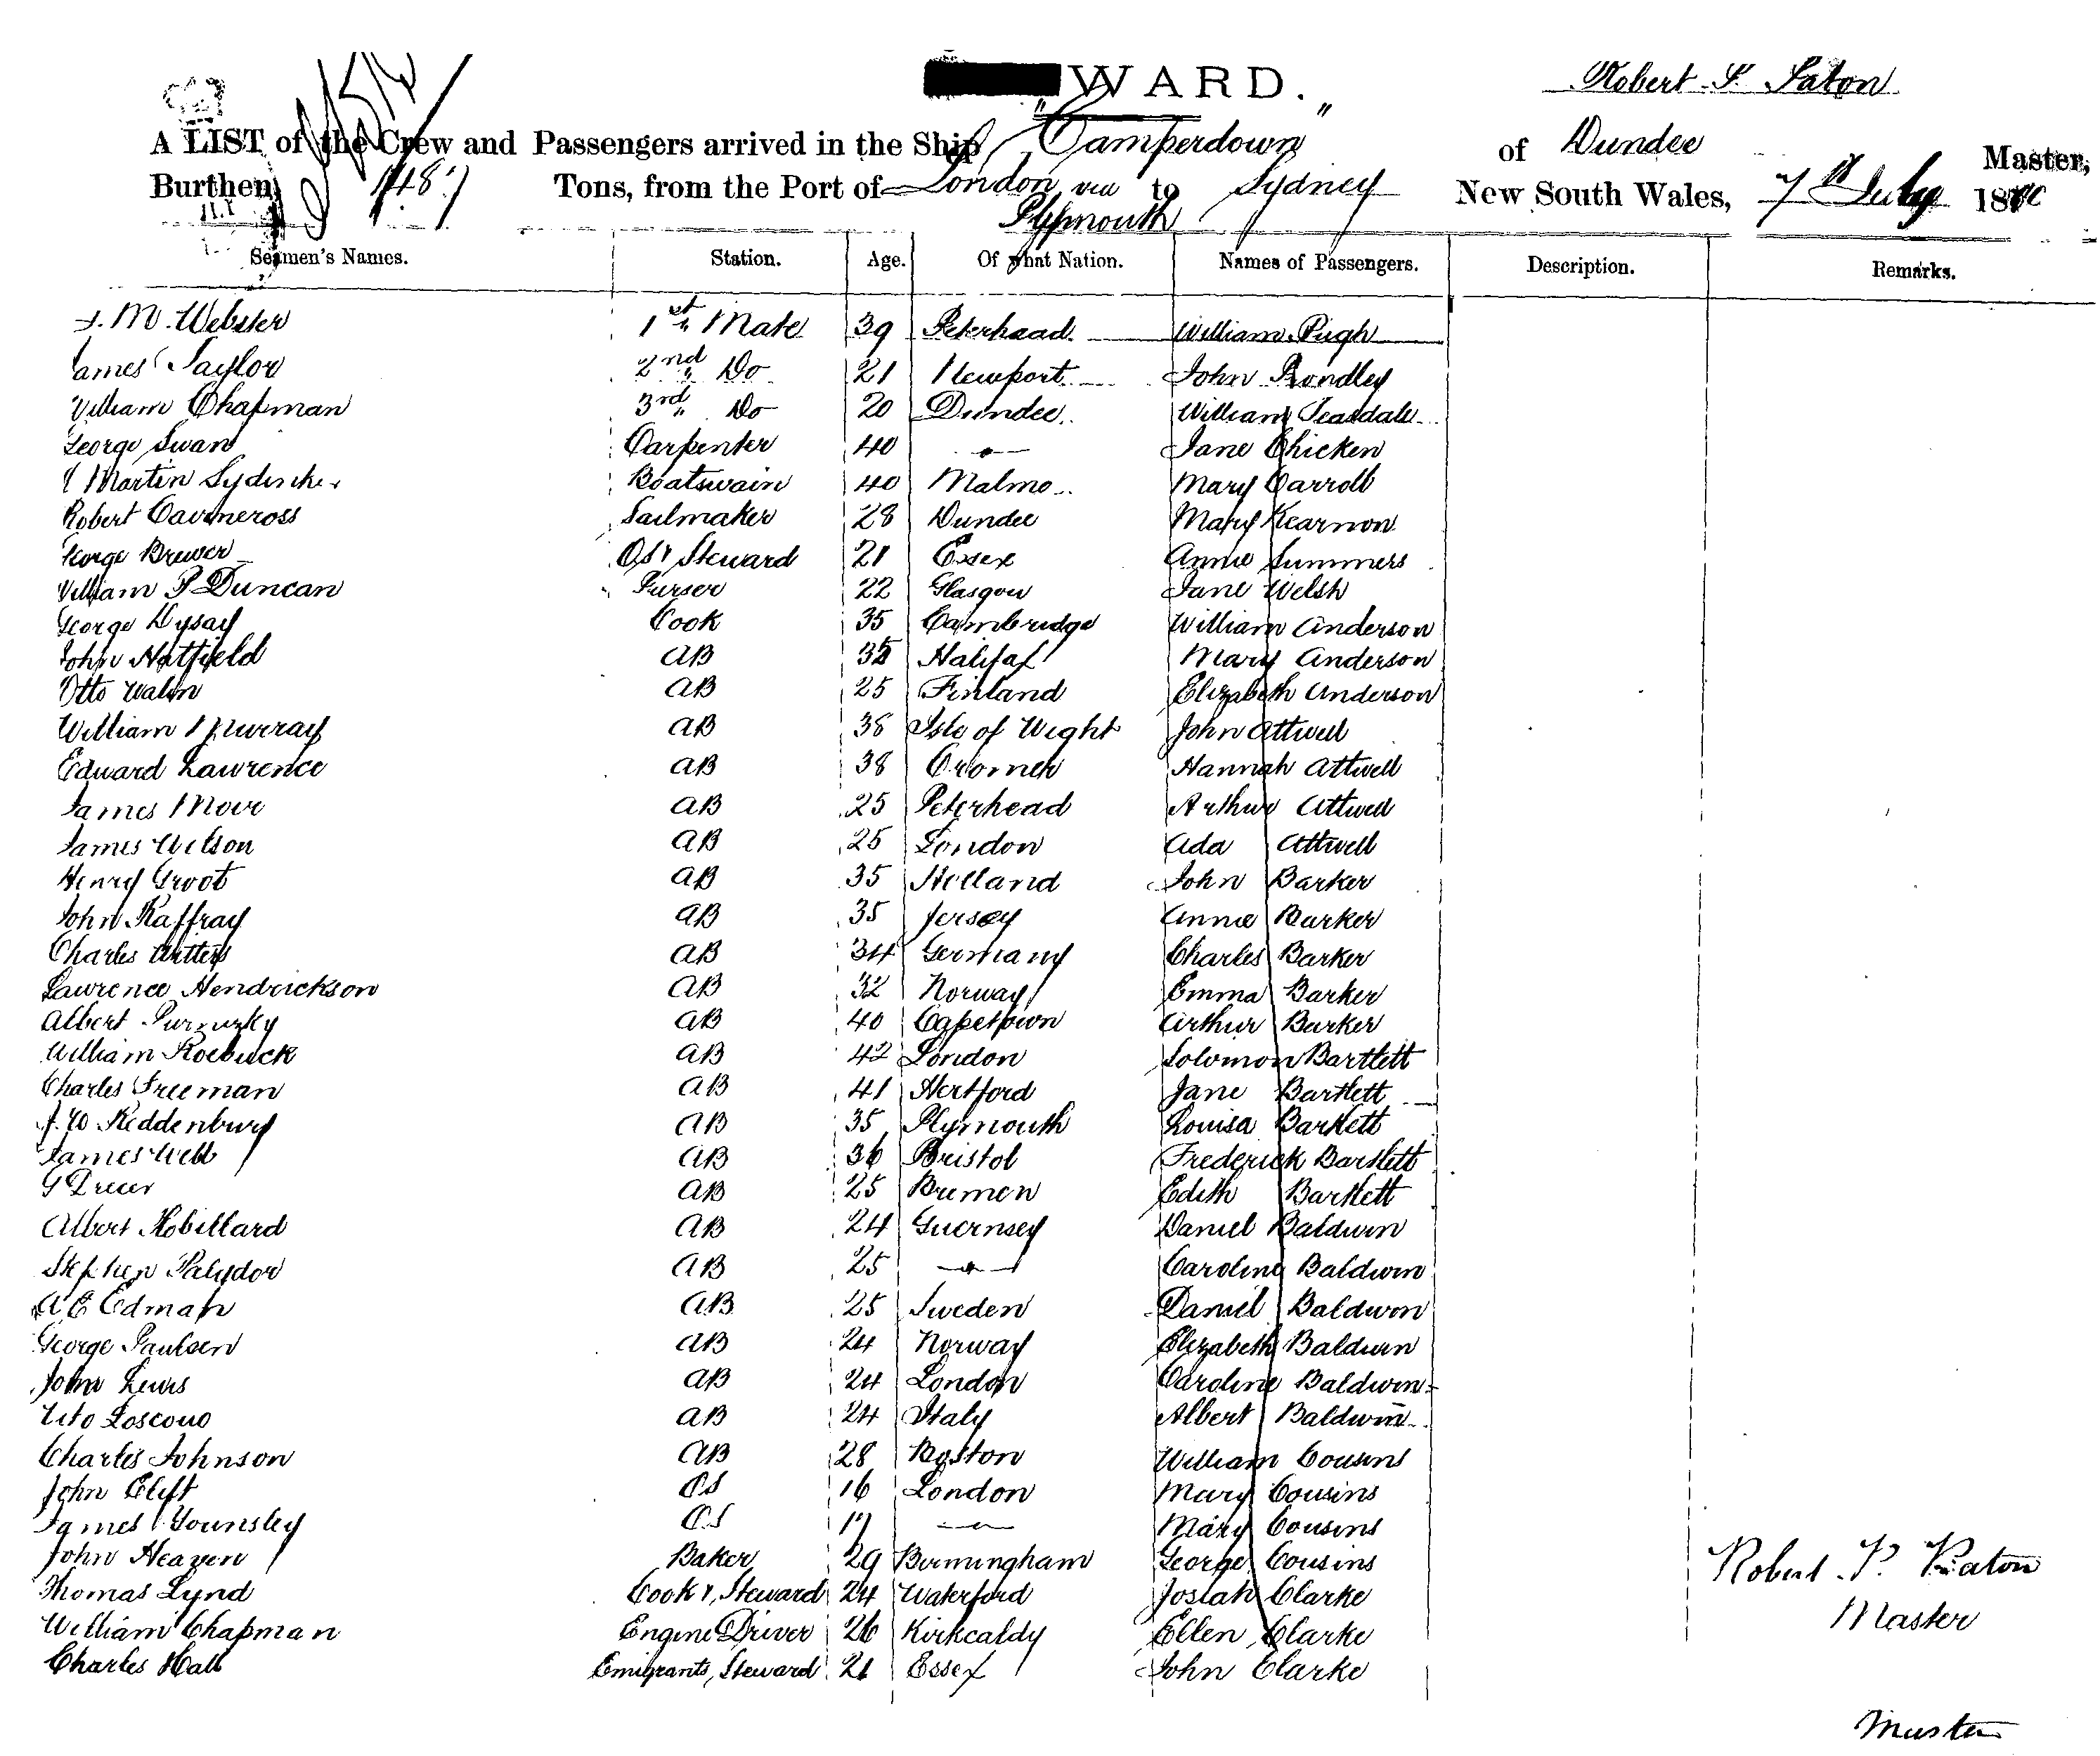 WARD.
Robert P. Paton
A LIST of the Crew and Passengers arrived in the Ship "Camperdown" of Dundee Master,
Burthen 1487 Tons, from the Port of London via Plymouth to Sydney New South Wales, 7th July 18
Seamen's Names. Station. Age. Of what Nation. Names of Passengers. Description. Remarks.
M. Webster 1st Mate 39 Peterhead William Pugh
James Taylor 2nd " Do 21 Newport John
William Chapman 3rd " Do 20 Dundee William Teasdale
George Swan Carpenter 40 -"- Jane Chicken
Martin Boatswain 40 Malmo Mary Carroll
Robert Cairncross Sailmaker 28 Dundee Mary Kearnon
George Brewer Steward 21 Essex Annie Summers
William P Duncan Purser 22 Glasgow Jane Welsh
George Dysay Cook 35 Cambridge William Anderson
John Hatfield AB Halifax Mary Anderson
Otto AB 25 Finland Elizabeth Anderson
William Murray AB 38 Isle of Wight John Attwell
Edward Lawrence AB 38 Cromer Hannah Attwell
James Moir AB 25 Peterhead Arthur Attwell
James Wilson AB 25 London Ada Attwell
Henry Groot AB 35 Holland John Barker
John Raffray AB 35 Jersey Annie Barker
Charles AB 34 Germany Charles Barker
Lawrence Hendrickson AB 32 Norway Emma Barker
Albert AB 40 Capetown Arthur Barker
William Roebuck AB 42 London Solomon Bartlett
Charles Freeman AB 41 Hertford Jane Bartlett
Reddenbury AB 35 Plymouth Louisa Bartlett
James Webb AB 36 Bristol Frederick Bartlett
G AB 25 Bremen Edith Bartlett
Albert Robillard AB 24 Guernsey Daniel Baldwin
Stephen AB 25 -"- Caroline Baldwin
A E Edman AB 25 Sweden Daniel Baldwin
George Paulsen AB 24 Norway Elizabeth Baldwin
John Lewis AB 24 London Caroline Baldwin
Vito AB 24 Italy Albert Baldwin
Charles Johnson AB 28 Boston William Cousins
John Clift OS 16 London Mary Cousins
James Younsley OS 17 -"- Mary Cousins
John Heaven Baker 29 Birmingham George Cousins
Thomas Lynd Cook & Steward 24 Waterford Josiah Clarke
William Chapman Engine Driver 26 Kirkcaldy Ellen Clarke
Charles Hall Emigrants, Steward 21 Essex John Clarke
Robert P. Paton
Master
Master